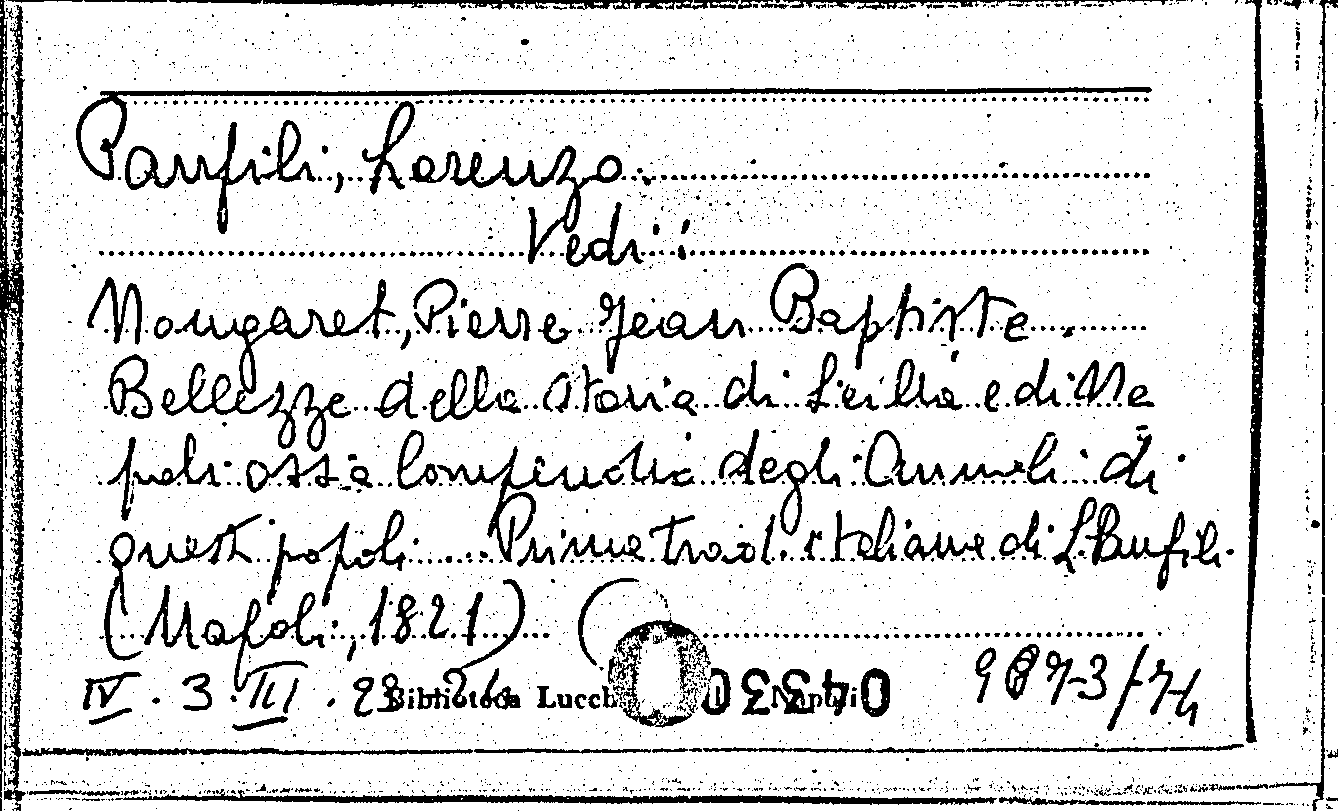 Panfili, Lorenzo.
Vedi:
Nougaret, Pierre Jean Baptiste.
Bellezze della storia di Sicilia e di Na
poli ossia Compendio degli Annali di
questi popoli .... Prima trad. italiana di L. Panfili.
(Napoli, 1821)
IV . 3 . III . 23
Biblioteca Lucch Napoli
04330
9873/74